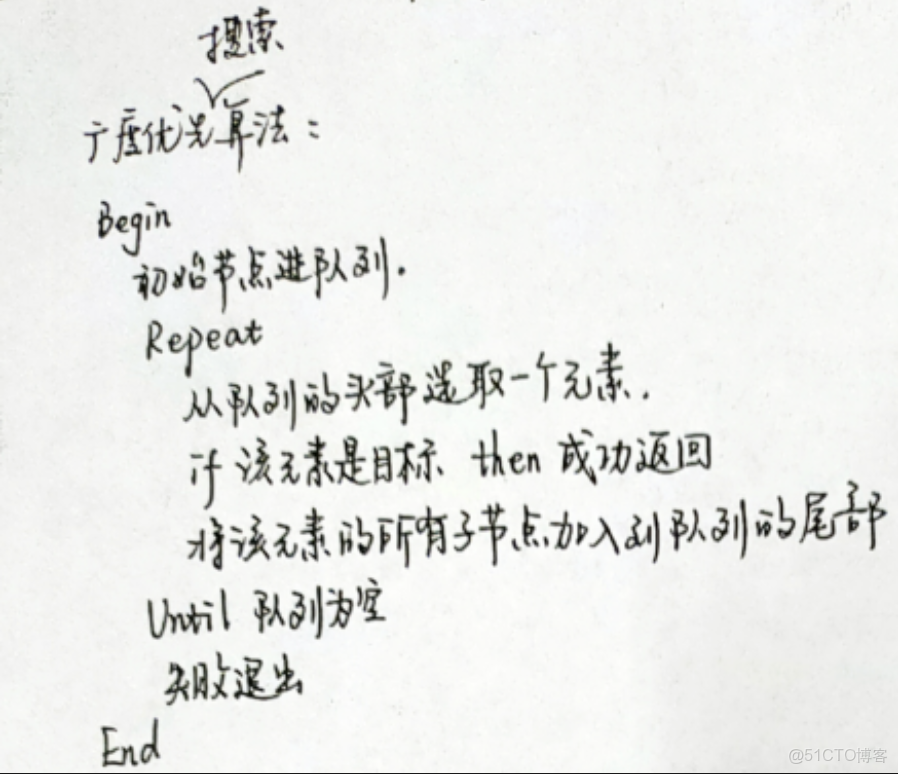 搜索
广度优先算法：
Begin
初始节点进队列.
Repeat
从队列的头部选取一个元素.
if 该元素是目标 then 成功返回
将该元素的所有子节点加入到队列的尾部
Until 队列为空
失败退出
End
@51CTO博客